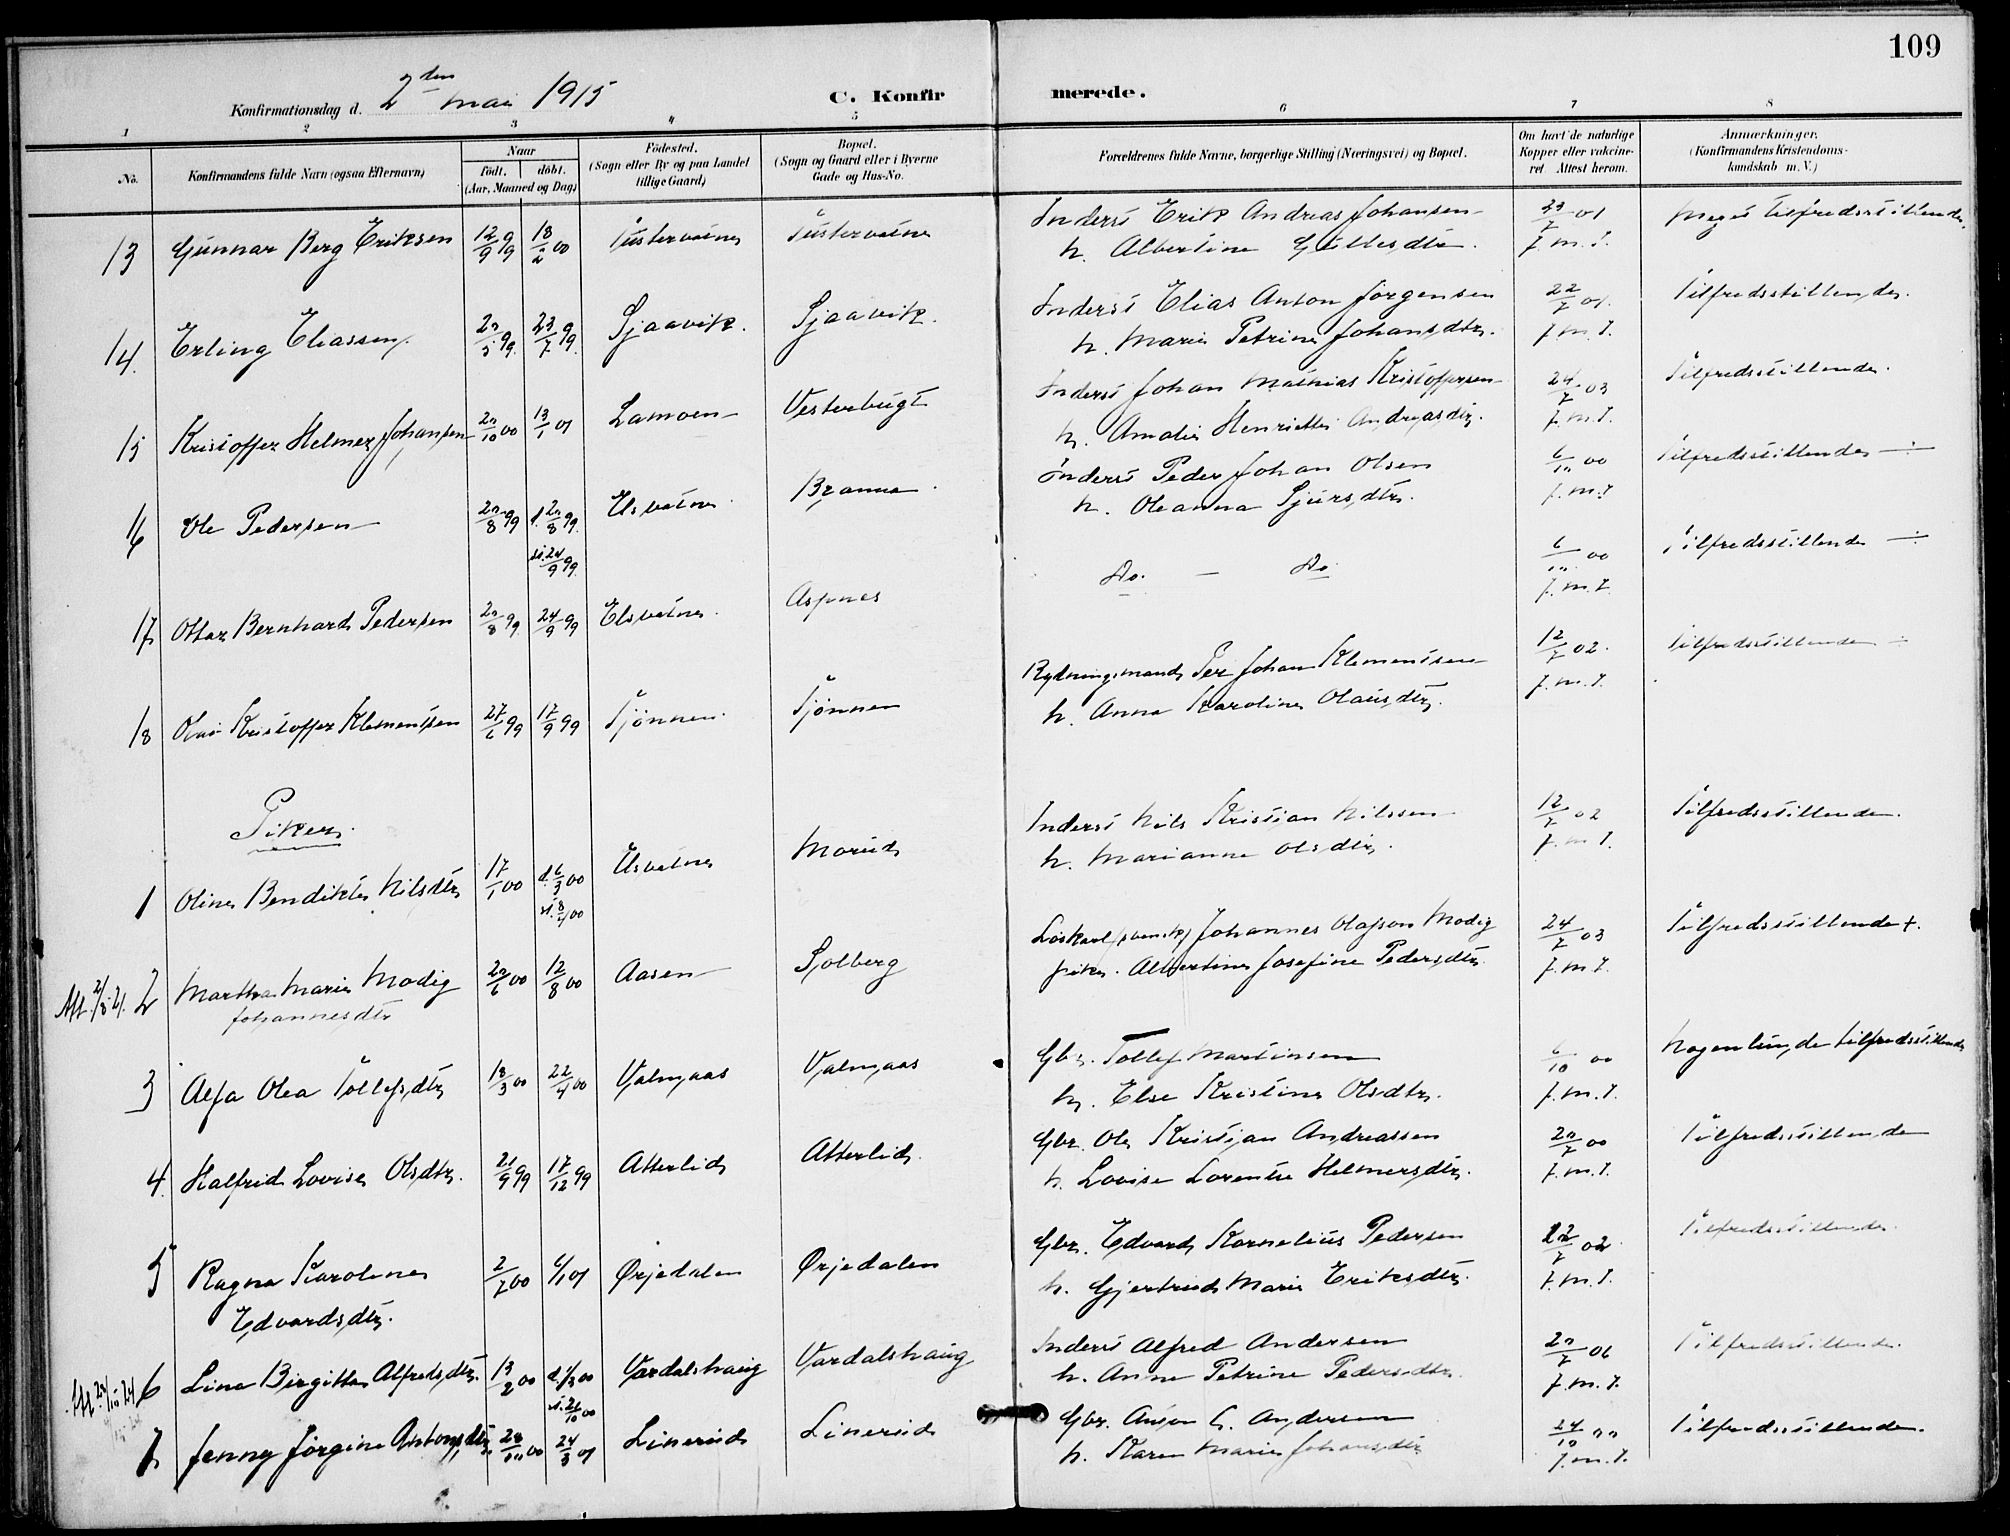 109
Konfirmationsdag d. 2den mai 1915
C. Konfirmerede.
1 2 3 4 5 6 7 8
No.
Konfirmandens fulde Navn (ogsaa Efternavn)
Naar
födt. döbt.
(Aar, Maaned og Dag)
Födested.
(Sogn eller By og paa Landet
tillige Gaard)
Bopæl.
(Sogn og Gaard eller i Byerne
Gade og Hus-No.
Forældrenes fulde Navne, borgerlige Stilling (Næringsvei) og Bopæl.
Om havt de naturlige
Kopper eller vakcine-
ret Attest herom.
Anmærkninger.
(Konfirmandens Kristendoms-
kundskab m. V.)
13 Gunnar Berg Eriksen 12/9 99 18/2 00 Tustervatne Tustervatne Inderst Erik Andreas Johansen 23/7 01 Meget tilfredsstillende.
h. Albertine Gullesdtr. f.m.I.
14. Erling Eliassen. 20/5 99. 23/7 99. Sjaavik. Sjaavik. Inderst Elias Anton Jørgensen 22/7 01. Tilfredsstillende.
h. Marie Petrine Johansdtr. f.m.I.
15 Kristoffer Helmer Johansen 20/10 00 13/1 01 Lamoen Vesterbugt Inderst Johan Mathias Kristoffersen 24/7 03 Tilfredsstillende.
h. Amalie Henriette Andreasdtr. f.m.I.
16 Ole Pedersen 20/8 99 d. 20/8 99. Elsvatne. Brænna. Inderst Peder Johan Olsen 6/10 00 Tilfredsstillende ÷
st. 24/9 99. h. Oleanna Sjursdtr. f.m.I
17 Ottar Bernhard Pedersen 20/8 99. 24/9 99 Elsvatne. Aspnes Do. — Do. 6/10 00 Tilfredsstillende ÷
f.m.I.
18 Olai Kristoffer Klementsen 27/6 99 17/9 99 Tjønnen. Tjønnen Rydningsmand Per Johan Klementsen 12/7 02. Tilfredsstillende ÷
h. Anna Karoline Olausdtr. f.m.I.
Piker.
1 Oline Bendikte Nilsdtr 17/1 00 d. 6/3 00 Elsvatne Morud Inderst Nils Kristian Nilssen 12/7 02 Tilfredsstillende.
st. 8/4 00 h. Marianne Olsdtr. f.m.I.
2 Martha Marie Modig 20/6 00 12/8 00 Aasen Solberg Løskarl (svensk) Johannes Olofson Modig 24/7 03 Tilfredsstillende +.
Johannesdtr pike. Albertine Josefine Pedersdtr. f.m.I.
3 Alfa Olea Tollefsdtr 18/3 00 22/4 00 Valmaas Valmaas Gbr. Tollef Martinsen 6/10 00 Nogenlunde tilfredsstillende
h. Else Kristine Olsdtr. f.m.I.
4. Halfrid Lovise Olsdtr. 21/9 99 17/12 99 Atterlid Atterlid. Gbr. Ole Kristian Andreassen 20/7 00 Tilfredsstillende
h. Lovise Lorentse Helmersdtr. f.m.I.
5 Ragna Karoline 2/7 00 6/1 01 Ørjedalen Ørjedalen Gbr. Edvard Kornelius Pedersen 22/7 02 Tilfredsstillende.
Edvardsdtr. h. Gjertrud Marie Eriksdtr. f.m.I.
6 Lina Birgitte Alfredsdtr. 13/2 00 Vardalshaug Vardalshaug Inderst Alfred Andersen 20/7 06 Tilfredsstillende.
st. 21/10 00 h. Anne Petrine Pedersdtr. f.m.I.
7 Jenny Jørgine Antonsdtr. 28/10 00 24/3 01 Linerud Linerud Gbr. Anton C. Andersen Tilfredsstillende.
h. Karen Marie Johansdtr f.m.I.